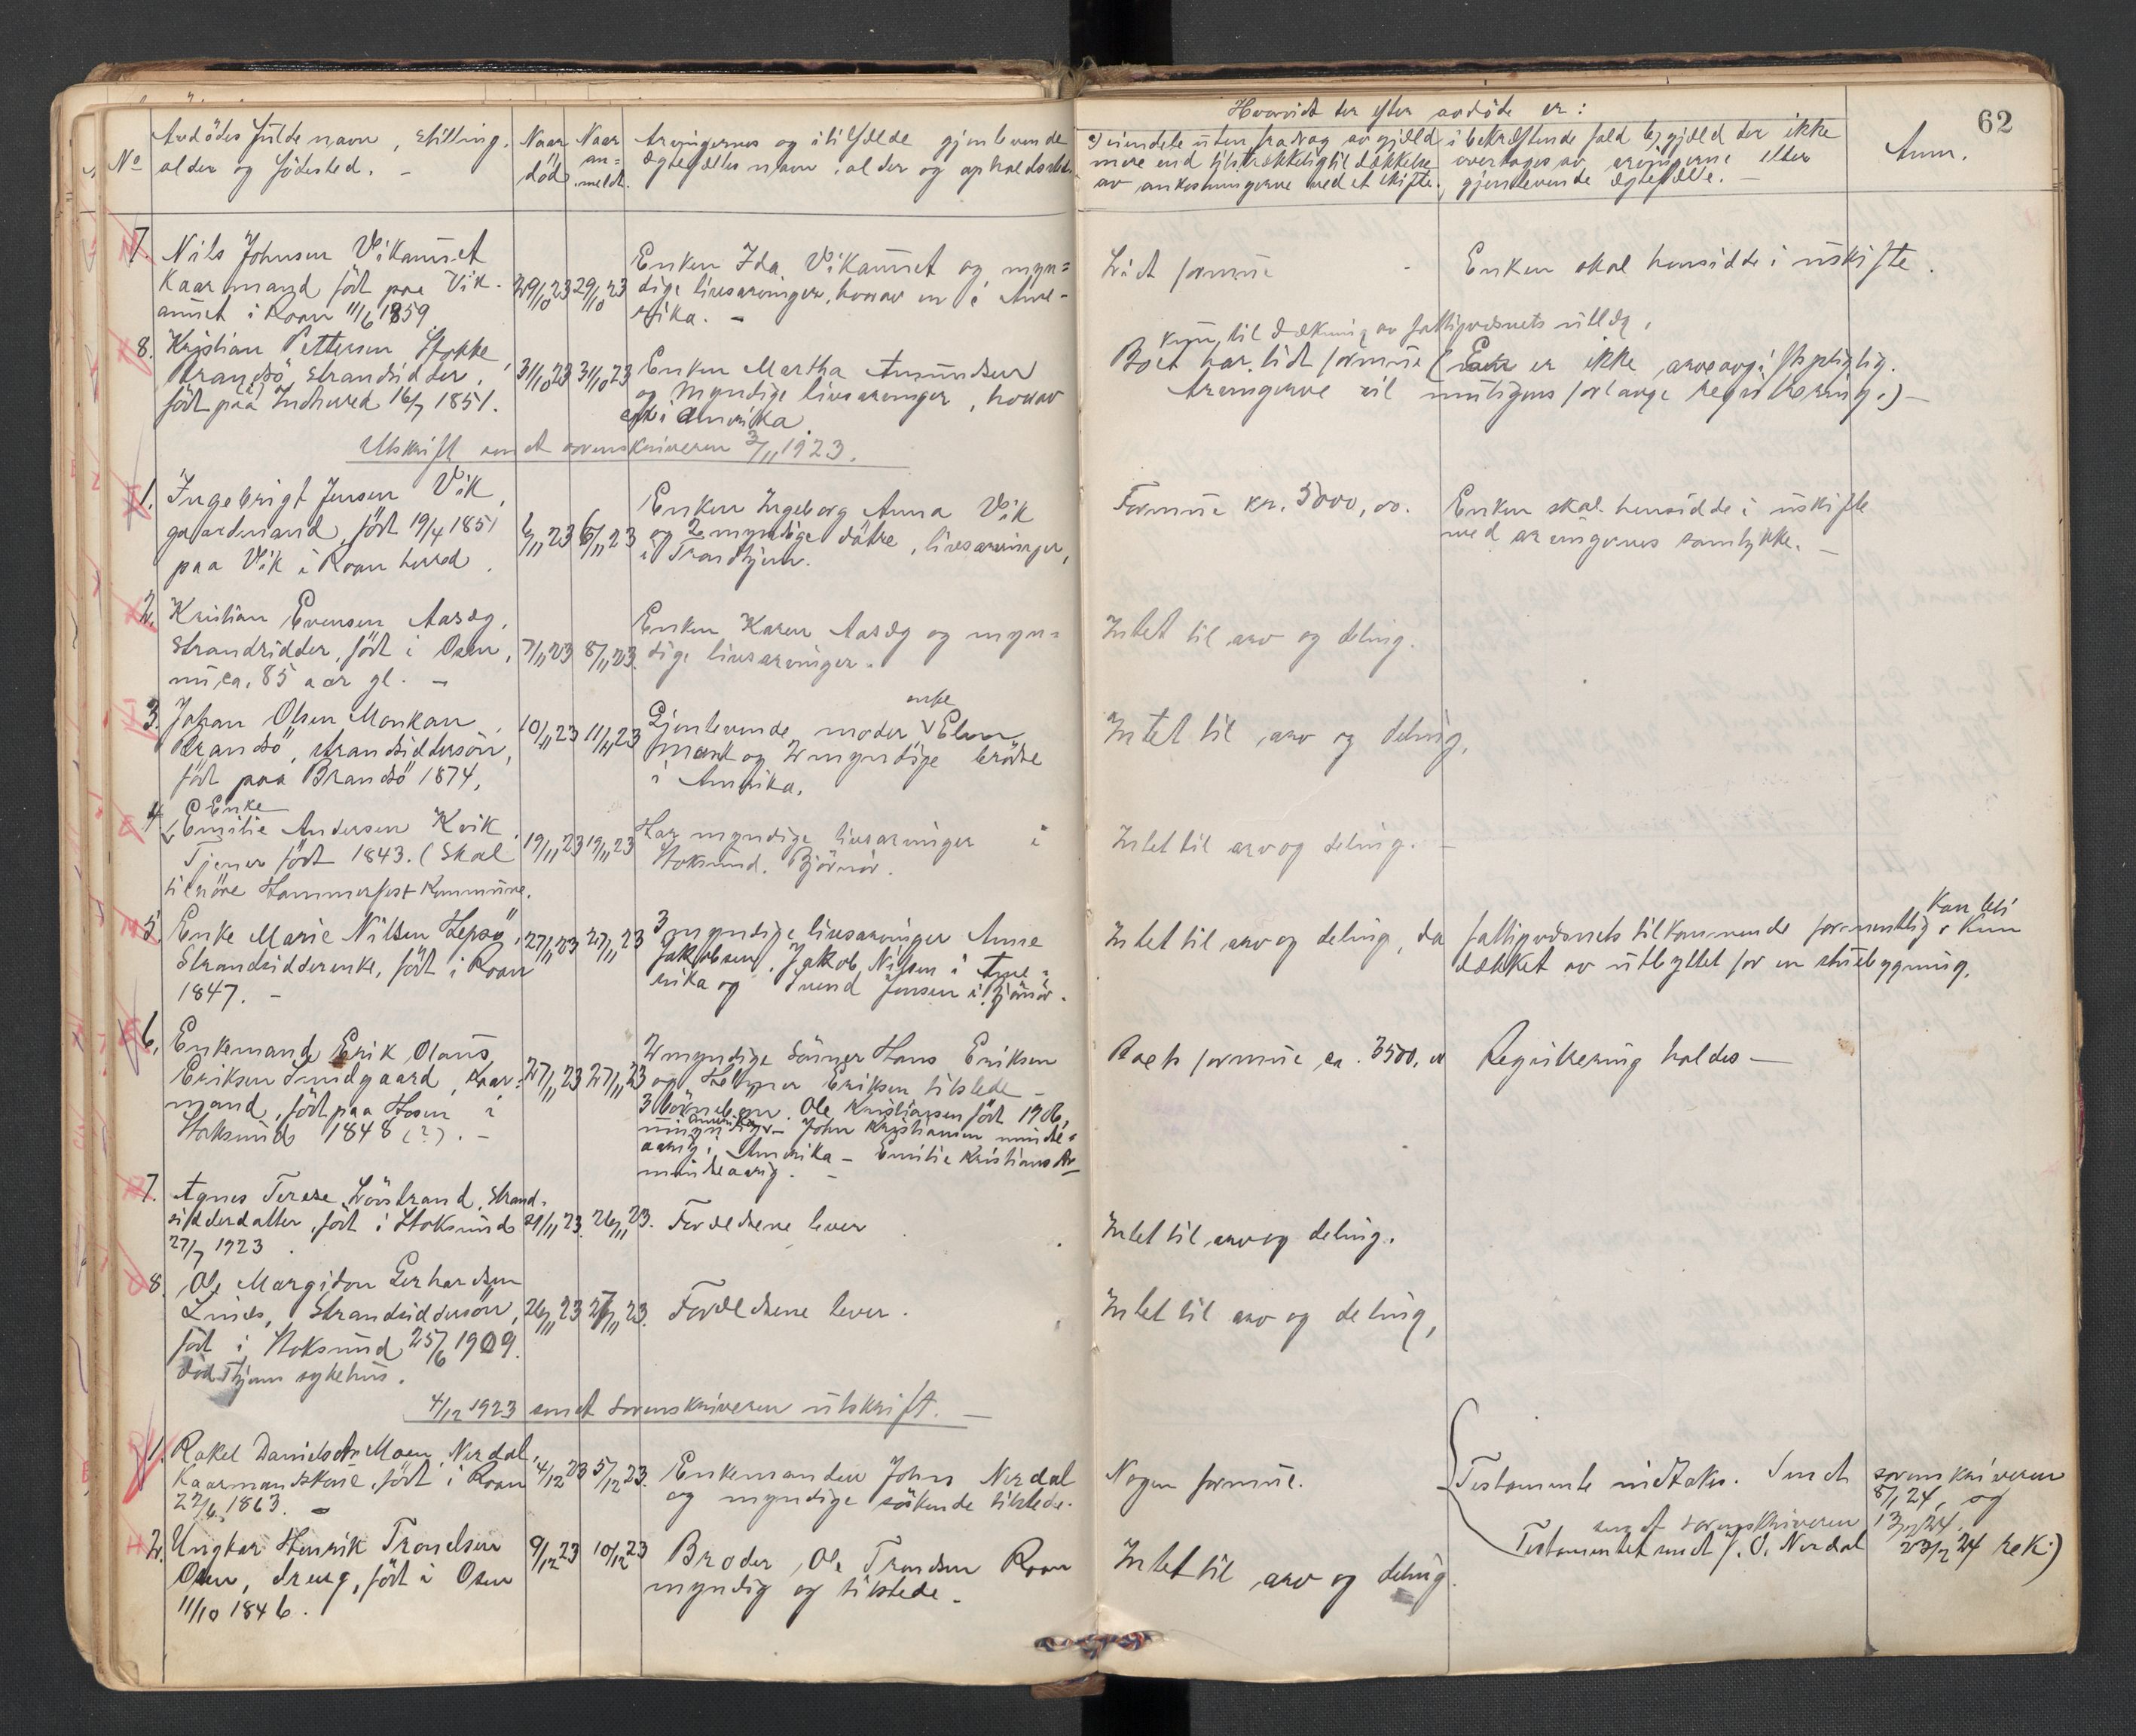 62
No
Avdödes fulde navn, stilling,
alder og födested. -
Naar
död
Naar
an=
meldt.
Arvingernes og i tilfælde gjenlevende
ægtefælles navn, alder og opholdssted.
Hvorvidt der efter avdöde er:
a) eiendele uten fradrag av gjæld
mere end tilstrækkelig til dækkelse
av omkostningerne ved et skifte.
i bekræftende fald b) gjæld der ikke
overtages av arvingerne eller
gjenlevende ægtefælle. -
Anm.
7. Nils Johnsen Vikaunet
Kaarmand född paa Vik-
aunet i Roan 11/6 1859
29/10 23 29/10 23
Enken Ida Vikaunet og myn=
dige livsarvinger, hvorav en i Ame-
rika. -
Lidt formue
Enken skal hensidde i uskifte.
8. Kristian Pettersen Stokke
Brandsö, strandsidder,
födt paa Indherred 16/7 1851.
31/10 23 31/10 23
Enken Martha Amundsen
og myndige livsarvinger, hvorav
i Amerika.
kun til dækning av fattigvæsnets utlæg.
Boet har lidt formue (er ikke arveavgiftspligtig.
Arvingerne vil muligens forlange registrering.) -
Utskrift sendt sorenskriveren 3/11 1923.
1. Ingebrigt Jensen Vik,
gaardmand, födt 19/4 1851
paa Vik i Roan herred.
6/11 23 6/11 23
Enken Ingeborg Anna Vik
og 2 myndige dötre, livsarvinger,
i Trondhjem.
Formue kr. 5000,00.
Enken skal hensidde i uskifte
med arvingernes samtykke. -
2. Kristian Evensen Aasæg,
Strandsidder, födt i Osen,
nu ca. 85 aar gl. -
7/11 23 8/11 23.
Enken Karen Aasæg og myn=
dige livsarvinger.
Intet til arv og deling.
3. Johan Olsen Monkan,
Brandsö, strandsiddersön,
födt paa Brandsö 1874,
10/11 23 11/11 23
enke
Gjenlevende moder
og 2 myndige brödre
i Amerika.
Intet til arv og deling.
4. Enke
Emilie Andersen Kvik
Tjener födt 1843. (Skal
tilhöre Hammerfest Kommune.
19/11 23 19/11 23
Har myndige livsarvinger i
Stoksund. Björnör.
Intet til arv og deling. -
5. Enke Marie Nilsen Hepsö,
Strandsidderenke, födt i Roan
1847. -
27/11 23 27/11 23
3 myndige livsarvinger Anne
Jakobsen, Jakob Nilsen i Ame=
rika og Jensen i Björnör.
Intet til arv og deling, da fattigvæsnets tilkommende formentlig kan bli kun
dækket av utbyttet for en stuebygning.
6. Enkemand Erik Olaus
Eriksen Sundgaard, Kaar=
mand, födt paa Hosen i
Stoksund 1848 (?). -
27/11 23 27/11 23
2 myndige sönner Hans Eriksen
og Eriksen tilstede -
3 börnebörn. Ole Kristiansen födt 1906,
Amerika - John Kristiansen mindre=
aarig i Amerika - Emilie Kristiansdtr
mindreaarig. -
Boets formue ca. 3500,00
Registrering holdes -
7. Agnes Terese Lövstrand, Strand=
sidderdatter, födt i Stoksund
27/7 1923.
21/11 23. 26/11 23.
Forældrene lever
Intet til arv og deling.
8. Ole Margidon Gerhardsen
Linæs, Strandsiddersön,
födt i Stoksund 25/6 1909.
död Thjem sykehus.
26/11 23 27/11 23.
Forældrene lever.
Intet til arv og deling,
4/12 1923 sendt sorenskriveren utskrift. -
1. Rakel Danielsdtr Moen, Nerdal,
Kaarmandskone, födt i Roan
22/6 1863. -
4/12 23 5/12 23.
Enkemanden John Nerdal
og myndige söskende tilstede.
Nogen formue.
Testamente mottokes. Sendt sorenskriveren
8/1 24, og
sendt sorenskriveren 13/2 24.
Testamentet sendt J. O. Nerdal 23/2 24 rek.)
2. Ungkar Henrik Trondsen
Osen, dreng, födt i Osen
11/10 1846.
9/12 23 10/12 23
Broder Ole Trondsen Roan
myndig og tilstede.
Intet til arv og deling.